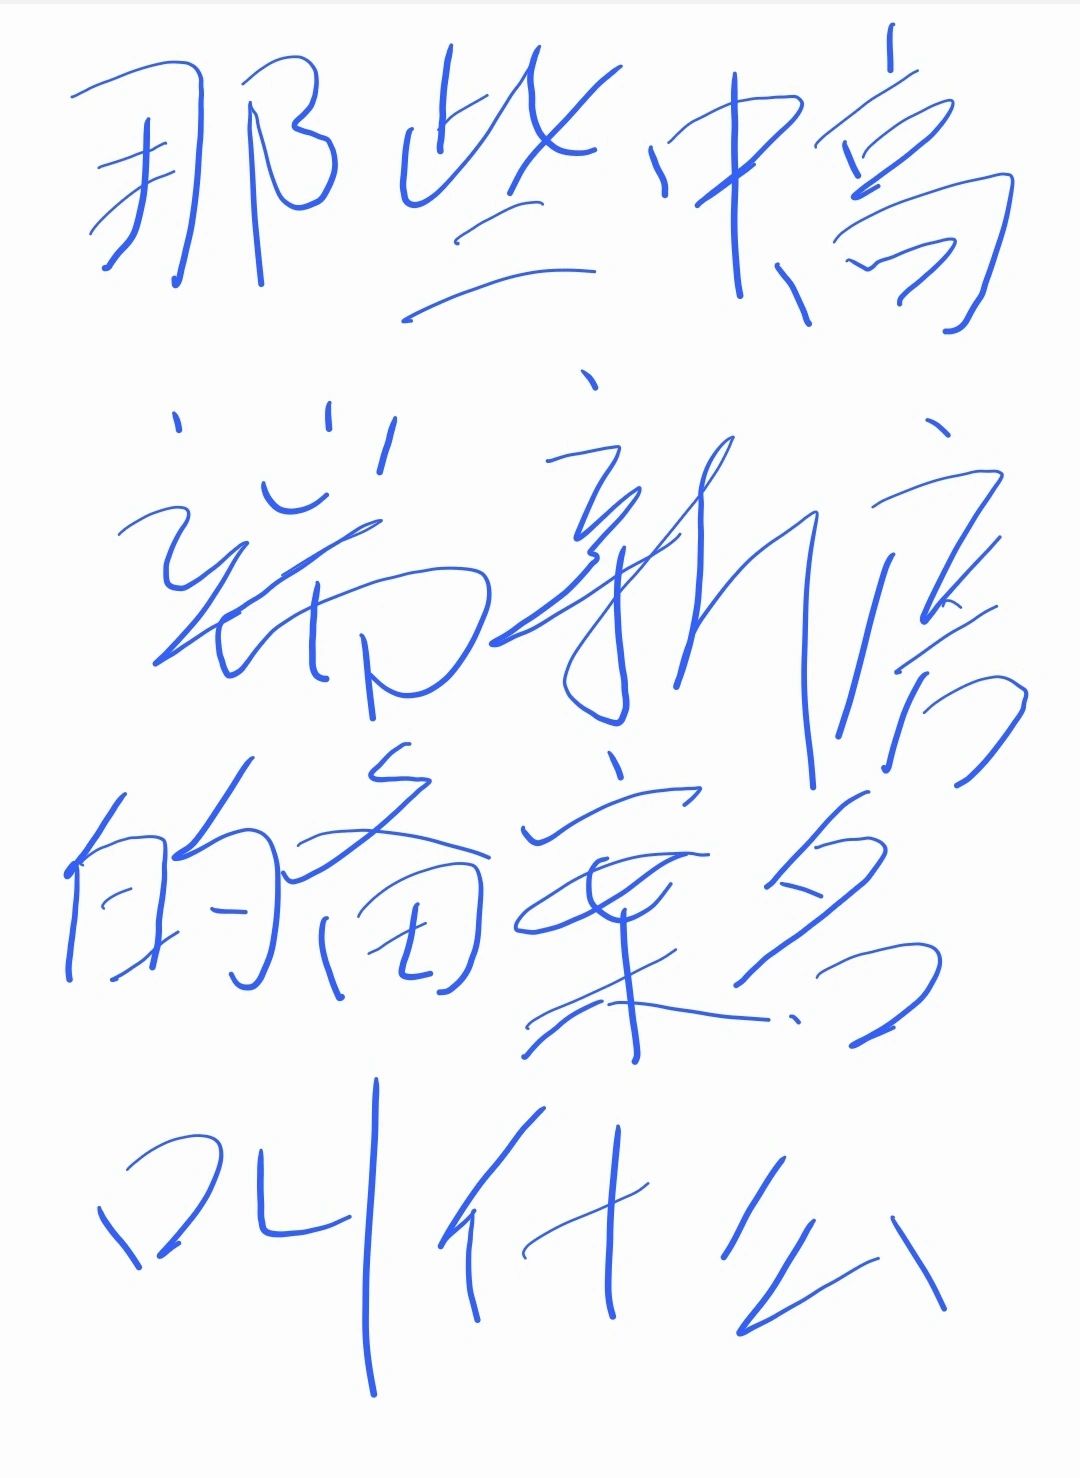 那些中、高
端新房
的备案名
叫什么